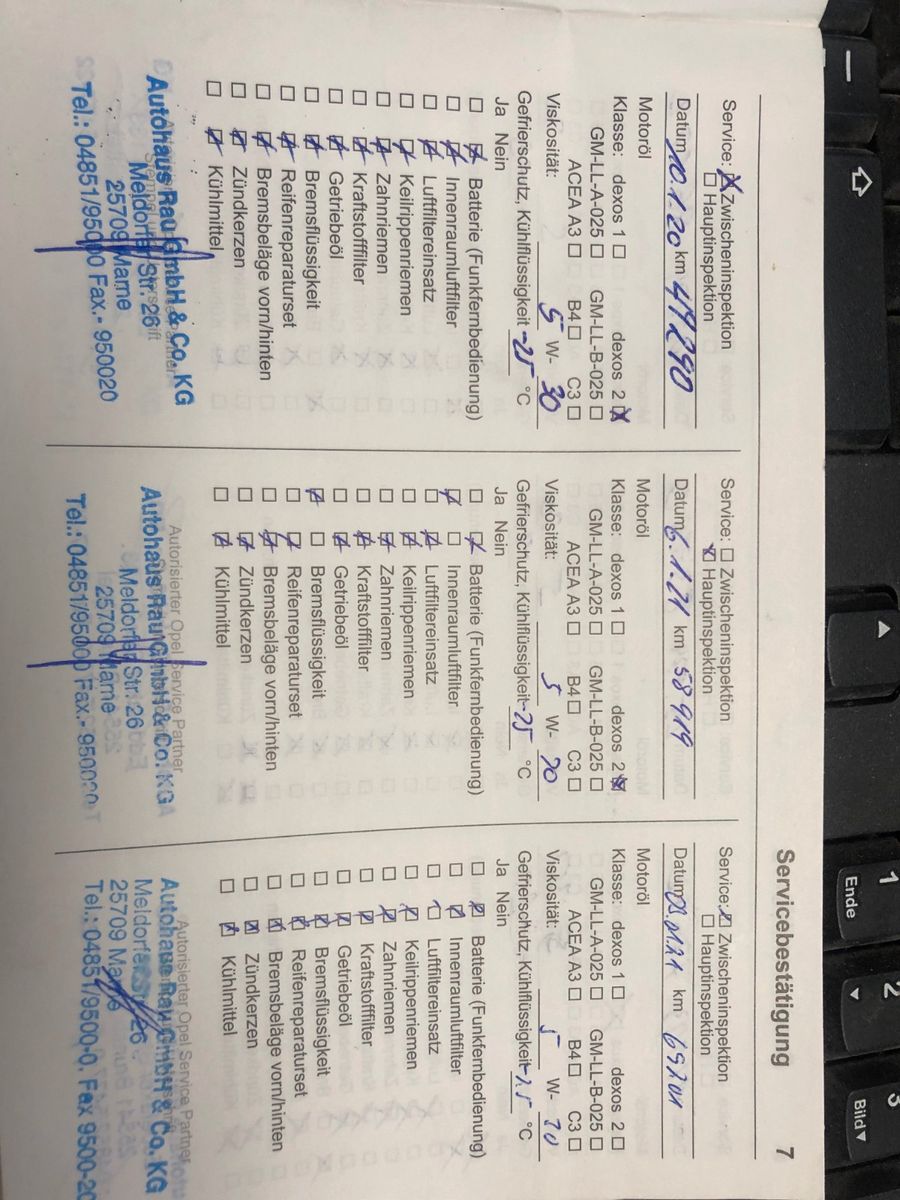 Servicebestätigung 7
Service: ☒ Zwischeninspektion
☐ Hauptinspektion
Datum 10.1.20 km 49290
Motoröl
Klasse: dexos 1 ☐ dexos 2 ☒
GM-LL-A-025 ☐ GM-LL-B-025 ☐
ACEA A3 ☐ B4 ☐ C3 ☐
Viskosität: 5 W- 30
Gefrierschutz, Kühlflüssigkeit -25 °C
Ja Nein
☐ ☒ Batterie (Funkfernbedienung)
☐ ☒ Innenraumluftfilter
☐ ☒ Luftfiltereinsatz
☐ ☒ Keilrippenriemen
☐ ☒ Zahnriemen
☐ ☒ Kraftstofffilter
☐ ☒ Getriebeöl
☐ ☒ Bremsflüssigkeit
☐ ☒ Reifenreparaturset
☐ ☒ Bremsbeläge vorn/hinten
☐ ☒ Zündkerzen
☐ ☒ Kühlmittel
Autohaus Rau GmbH & Co. KG
Meldorfer Str. 26
25709 Marne
Tel.: 04851/95000 Fax.- 950020
Service: ☐ Zwischeninspektion
☒ Hauptinspektion
Datum 6.1.21 km 58919
Motoröl
Klasse: dexos 1 ☐ dexos 2 ☒
GM-LL-A-025 ☐ GM-LL-B-025 ☐
ACEA A3 ☐ B4 ☐ C3 ☐
Viskosität: 5 W-
Gefrierschutz, Kühlflüssigkeit -25 °C
Ja Nein
☐ ☒ Batterie (Funkfernbedienung)
☒ ☐ Innenraumluftfilter
☐ ☒ Luftfiltereinsatz
☐ ☒ Keilrippenriemen
☐ ☒ Zahnriemen
☐ ☒ Kraftstofffilter
☐ ☒ Getriebeöl
☒ ☐ Bremsflüssigkeit
☐ ☒ Reifenreparaturset
☐ ☒ Bremsbeläge vorn/hinten
☐ ☒ Zündkerzen
☐ ☒ Kühlmittel
Autorisierter Opel Service Partner
Autohaus Rau GmbH & Co. KG
Meldorfer Str. 26
25709 Marne
Tel.: 04851/95000 Fax.- 950020
Service: ☒ Zwischeninspektion
☐ Hauptinspektion
Datum km
Motoröl
Klasse: dexos 1 ☐ dexos 2 ☐
GM-LL-A-025 ☐ GM-LL-B-025 ☐
ACEA A3 ☐ B4 ☐ C3 ☐
Viskosität: 5 W-
Gefrierschutz, Kühlflüssigkeit -25 °C
Ja Nein
☐ ☒ Batterie (Funkfernbedienung)
☐ ☒ Innenraumluftfilter
☐ Luftfiltereinsatz
☐ ☒ Keilrippenriemen
☐ ☒ Zahnriemen
☐ ☒ Kraftstofffilter
☐ ☒ Getriebeöl
☐ ☒ Bremsflüssigkeit
☐ ☒ Reifenreparaturset
☐ ☒ Bremsbeläge vorn/hinten
☐ ☒ Zündkerzen
☐ ☒ Kühlmittel
Autorisierter Opel Service Partner
Autohaus Rau GmbH & Co. KG
Meldorfer Str. 26
25709 Marne
Tel.: 04851/9500-0. Fax 9500-20
1
Ende
2
3
Bild